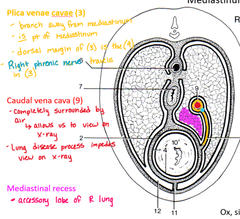 Mediastinum
Plica venae cavae (3)
- branch away from mediastinum
- is pt of mediastinum
- dorsal margin of (3) is the (9)
- Right phrenic nerve travels
in (3)
Caudal vena cava (9)
- Completely surrounded by
air → allows us to view on
x-ray
- Lung disease process impedes
view on x-ray
Mediastinal recess
- accessory lobe of R lung
7
2
4
10'
12
11
Ox, si